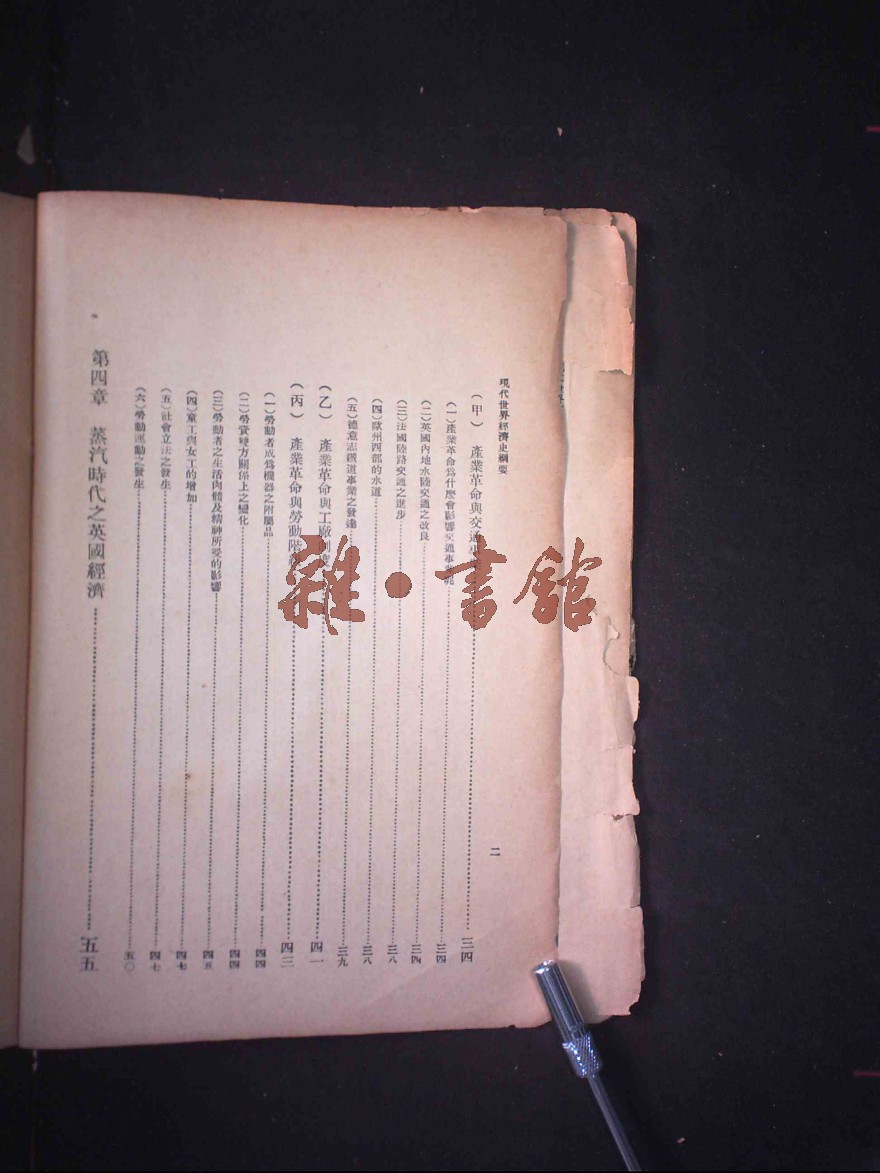 現代世界經濟史綱要
二
（甲） 產業革命與交通……三四
（一）產業革命爲什麼會影響交通事……三四
（二）英國內地水陸交通之改良……三四
（三）法國陸路交通之進步……三八
（四）歐州西部的水道……三八
（五）德意志鐵道事業之發達……三九
（乙） 產業革命與工廠制度……四一
（丙） 產業革命與勞動階……四三
（一）勞動者成爲機器之附屬品……四四
（二）勞資雙方關係上之變化……四四
（三）勞動者之生活肉體及精神所受的影響……四五
（四）童工與女工的增加……四七
（五）社會立法之發生……四七
（六）勞動運動之發生……五〇
第四章 蒸汽時代之英國經濟……五五
雜·書館